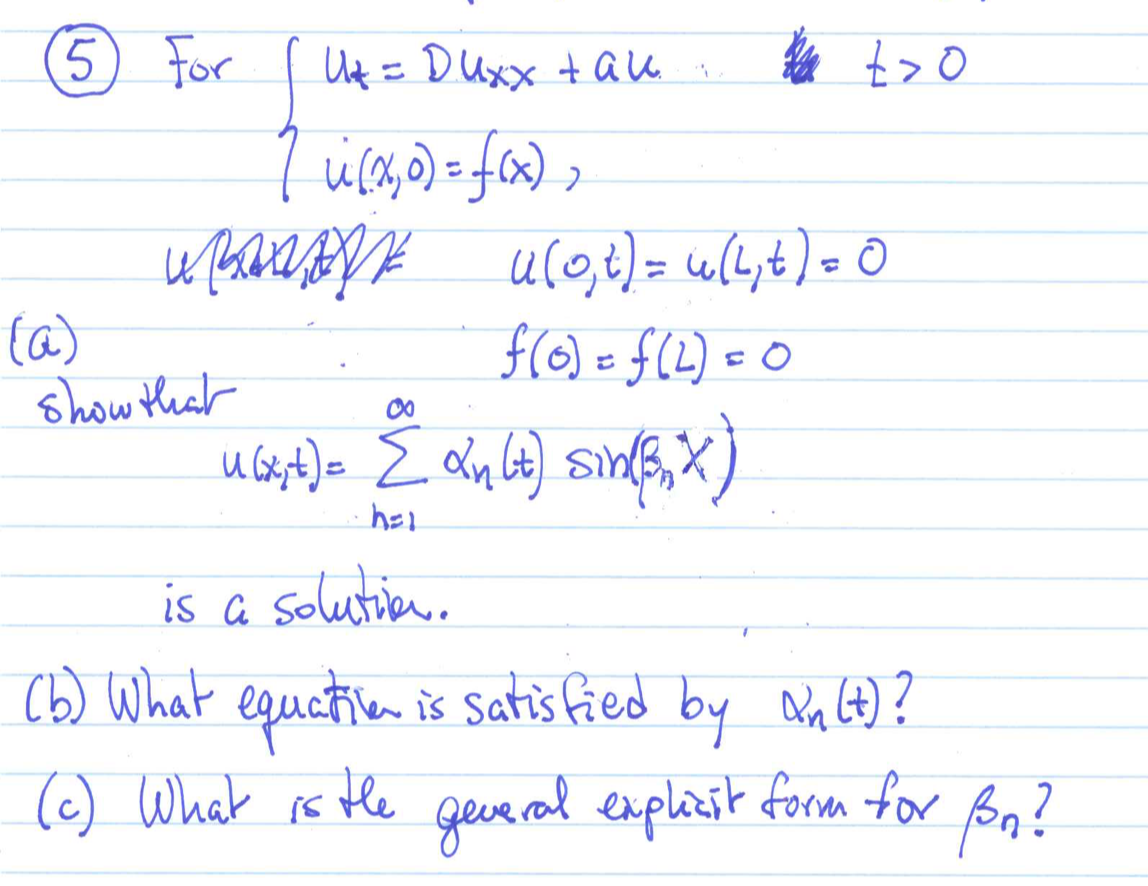 (5) For { Ut = D Uxx + au t > 0
u(x,0) = f(x) ,
u(0,t) = u(L,t) = 0
(a)
f(0) = f(L) = 0
show that
u(x,t) = ∞ Σ n=1 αn(t) sin(βn X)
is a solution.
(b) What equation is satisfied by αn(t)?
(c) What is the general explicit form for βn?